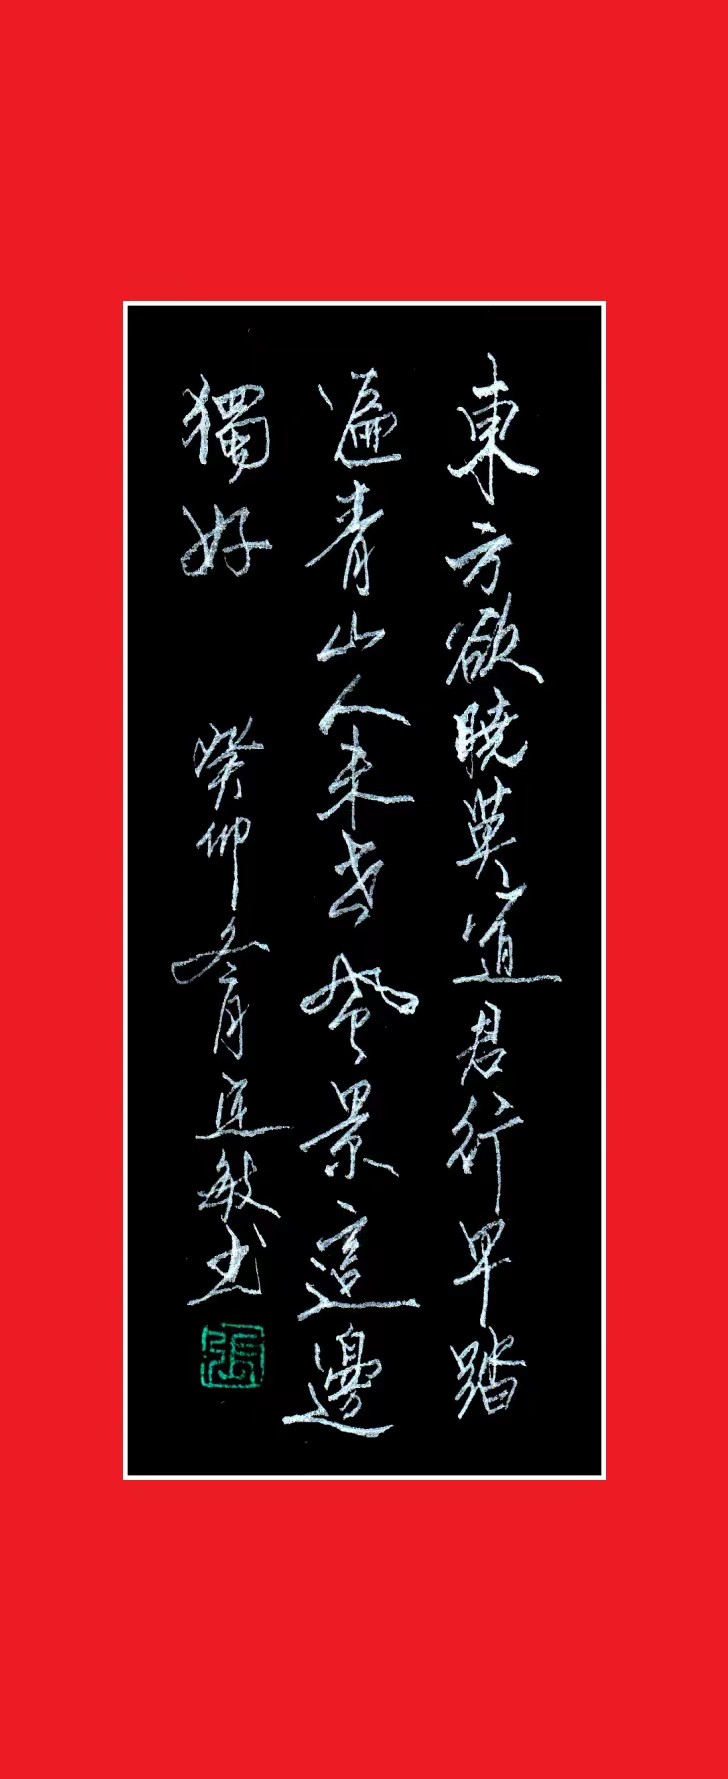 東方欲曉莫道君行早踏
遍青山人未老風景這邊
獨好
癸卯冬月連敏书
張